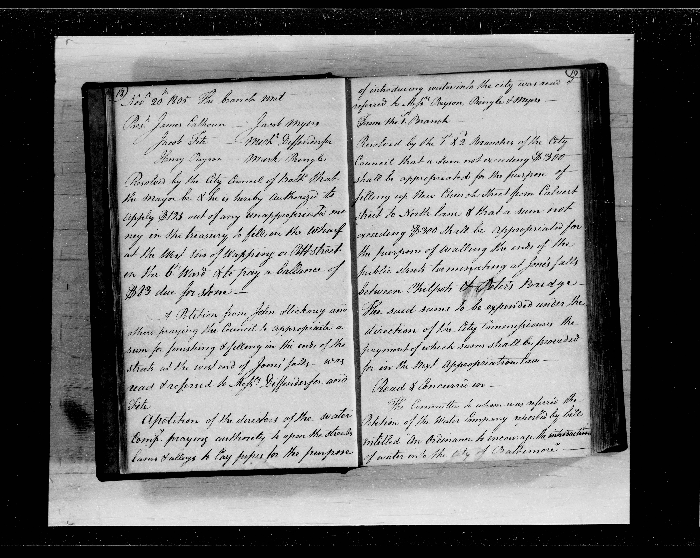 18
Nov 20th 1805 The branch met
Pres. James Calhoun – Jacob Myers
Jacob Fite – Mich. Deffenderfer
Henry Payson Mark Pringle
Resolved by the City Council of Balt. that
the mayor be & he is hereby authorized to
apply $128 out of any unappropriated mo
ney in the treasury to filling the Wharf
at the West side of Wapping or Pitt Street
in the 6th Ward & to pay a ballance of
$23 due for stone —
A Petition from John Mackeney and
others praying the Council to appropriate a
sum for finishing & filling in the ends of the
streets at the west end of Jones falls – was
read & referred to Messrs. Deffenderfer and
Fite
A petition of the directors of the water
Comp. praying authority to open the streets
lanes & alleys to lay pipes for the purpose
19
of introducing water into the city was read
referred to Messrs. Payson Pringle & Myers –
From the 1st Branch
Resolved by the 1 & 2 Branches of the City
Council that a sum not exceeding $300
shall be appropriated for the purpose of
filling up New Church Street from Calvert
street to North lane & that a sum not
exceeding $300 shall be appropriated for
the purpose of walling the ends of the
public streets terminating at Jones falls
between Philpots & Peters Bridges –
The said sums to be expended under the
direction of the City Commissioners the
payment of which sums shall be provided
for in the next Appropriation Law –
Read & concurred in –
The Committee to whom was referred the
Petition of the Water Company reported by bill
intitled An Ordinance to encourage the introduction
of water into the City of Baltimore —